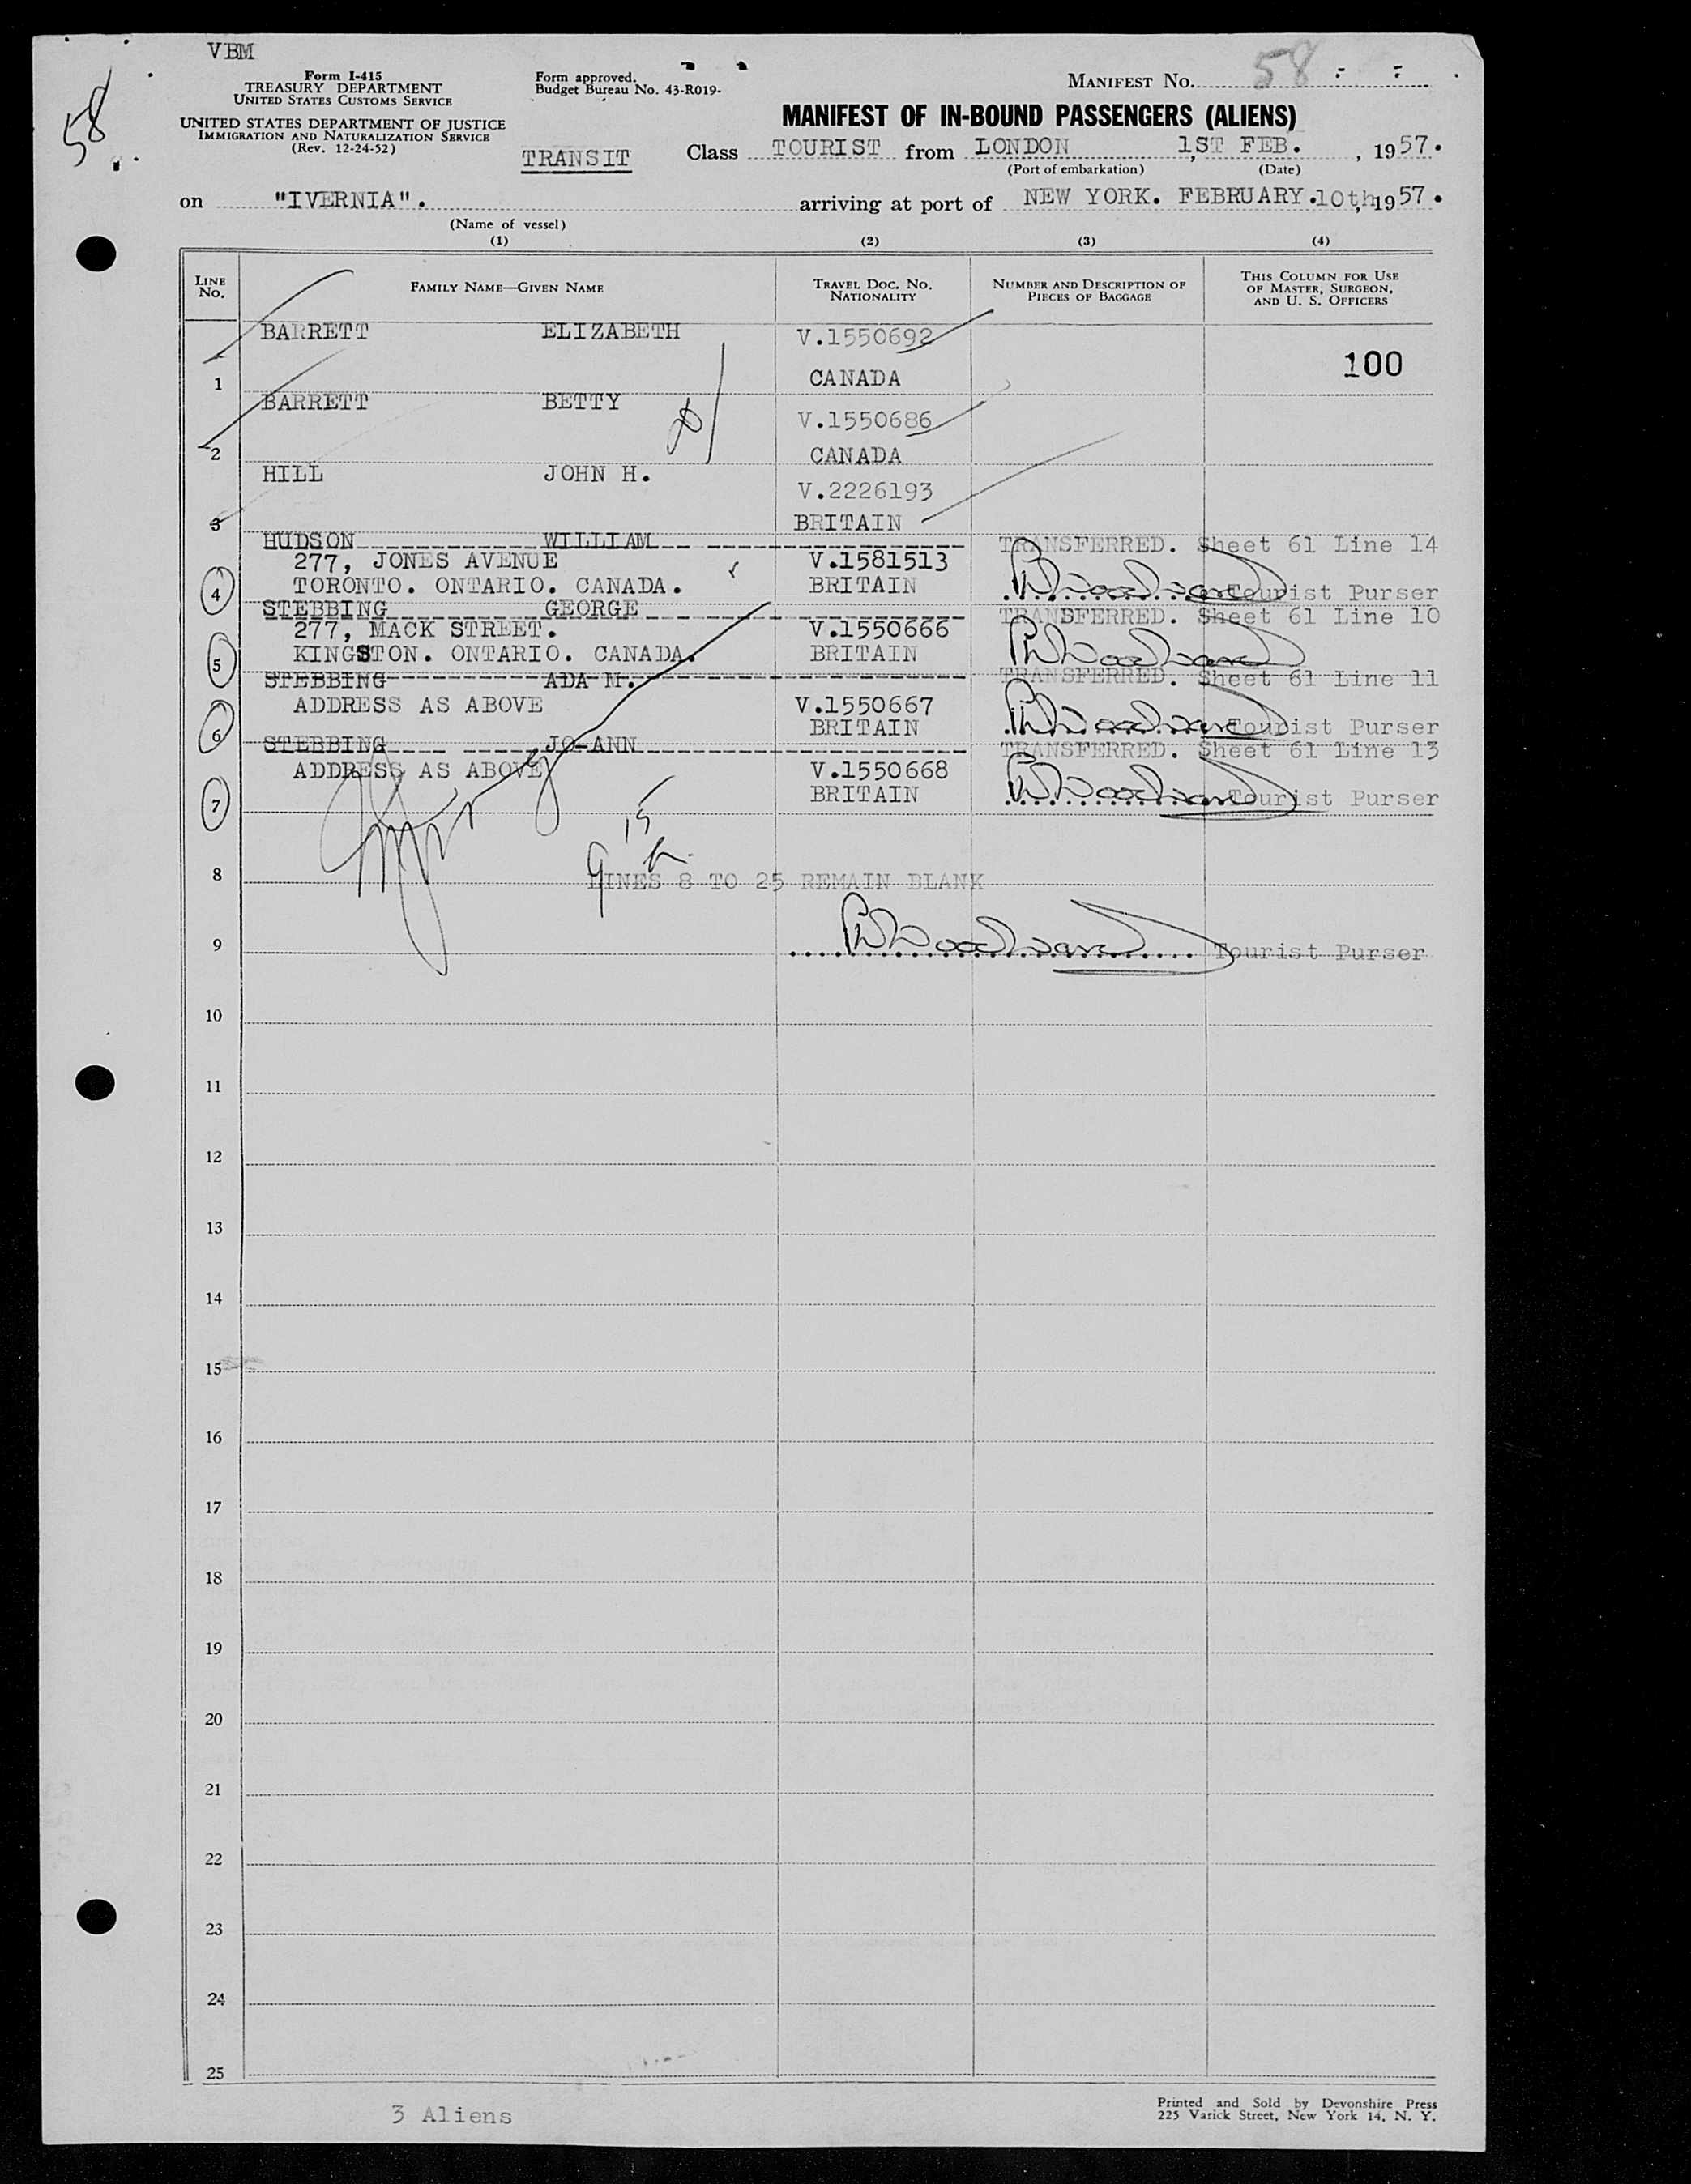 VBM
58
Form I-415
TREASURY DEPARTMENT
UNITED STATES CUSTOMS SERVICE
UNITED STATES DEPARTMENT OF JUSTICE
IMMIGRATION AND NATURALIZATION SERVICE
(Rev. 12-24-52)
Form approved.
Budget Bureau No. 43-R019-
MANIFEST NO. 58
MANIFEST OF IN-BOUND PASSENGERS (ALIENS)
TRANSIT Class TOURIST from LONDON 1ST FEB. , 1957.
(Port of embarkation) (Date)
on "IVERNIA". arriving at port of NEW YORK. FEBRUARY.10th, 1957.
(Name of vessel)
(1) (2) (3) (4)
LINE NO. FAMILY NAME—GIVEN NAME TRAVEL DOC. NO. NATIONALITY NUMBER AND DESCRIPTION OF PIECES OF BAGGAGE THIS COLUMN FOR USE OF MASTER, SURGEON, AND U. S. OFFICERS
BARRETT ELIZABETH V.1550692
1 CANADA 100
BARRETT BETTY V.1550686
2 CANADA
HILL JOHN H. V.2226193
3 BRITAIN
HUDSON WILLIAM TRANSFERRED. Sheet 61 Line 14
277, JONES AVENUE V.1581513
4 TORONTO. ONTARIO. CANADA. BRITAIN Tourist Purser
STEBBING GEORGE TRANSFERRED. Sheet 61 Line 10
277, MACK STREET. V.1550666
5 KINGSTON. ONTARIO. CANADA. BRITAIN
STEBBING ADA M. TRANSFERRED. Sheet 61 Line 11
ADDRESS AS ABOVE V.1550667
6 BRITAIN Tourist Purser
STEBBING JO-ANN TRANSFERRED. Sheet 61 Line 13
ADDRESS AS ABOVE V.1550668
7 BRITAIN Tourist Purser
8 LINES 8 TO 25 REMAIN BLANK
9 Tourist Purser
10
11
12
13
14
15
16
17
18
19
20
21
22
23
24
25
3 Aliens
Printed and Sold by Devonshire Press
225 Varick Street, New York 14, N. Y.